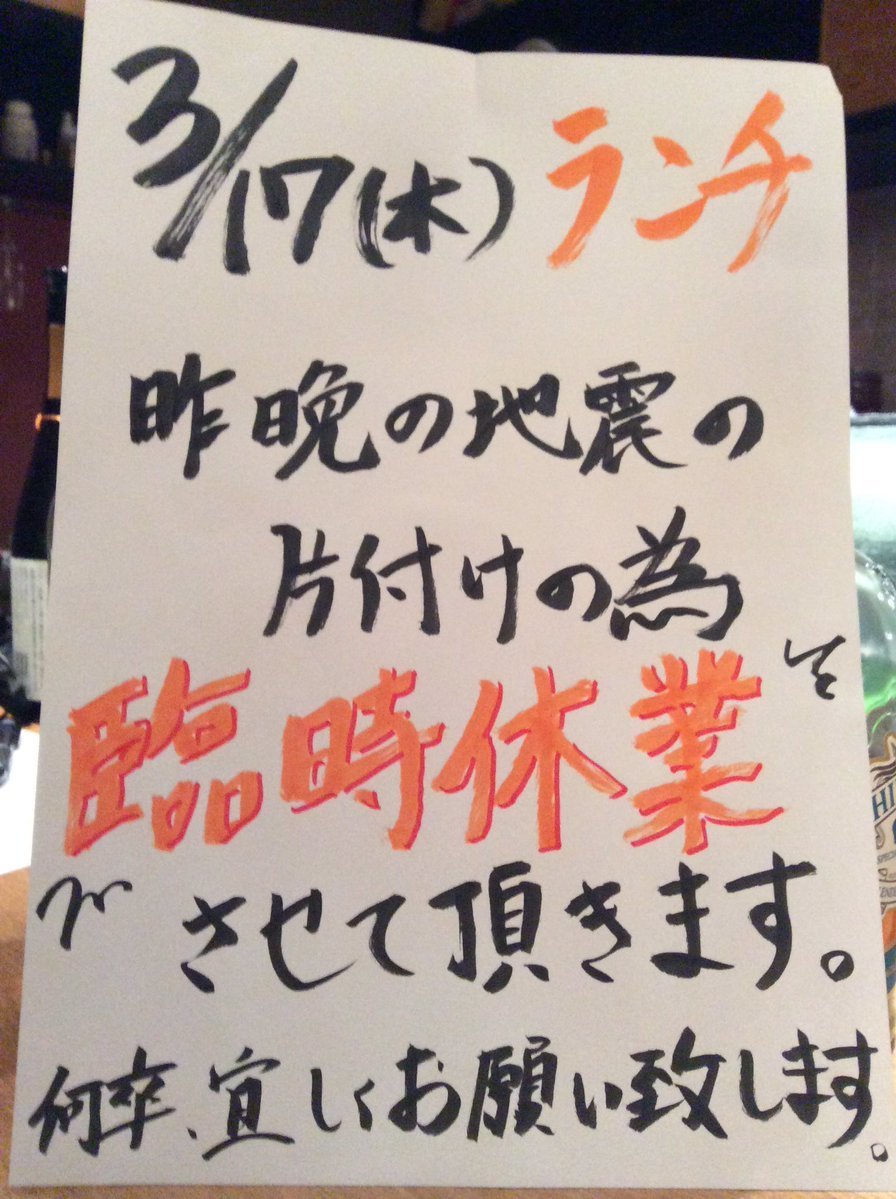 3/17(木) ランチ
昨晩の地震の
片付けの為
臨時休業
させて頂きます。
何卒、宜しくお願い致します。